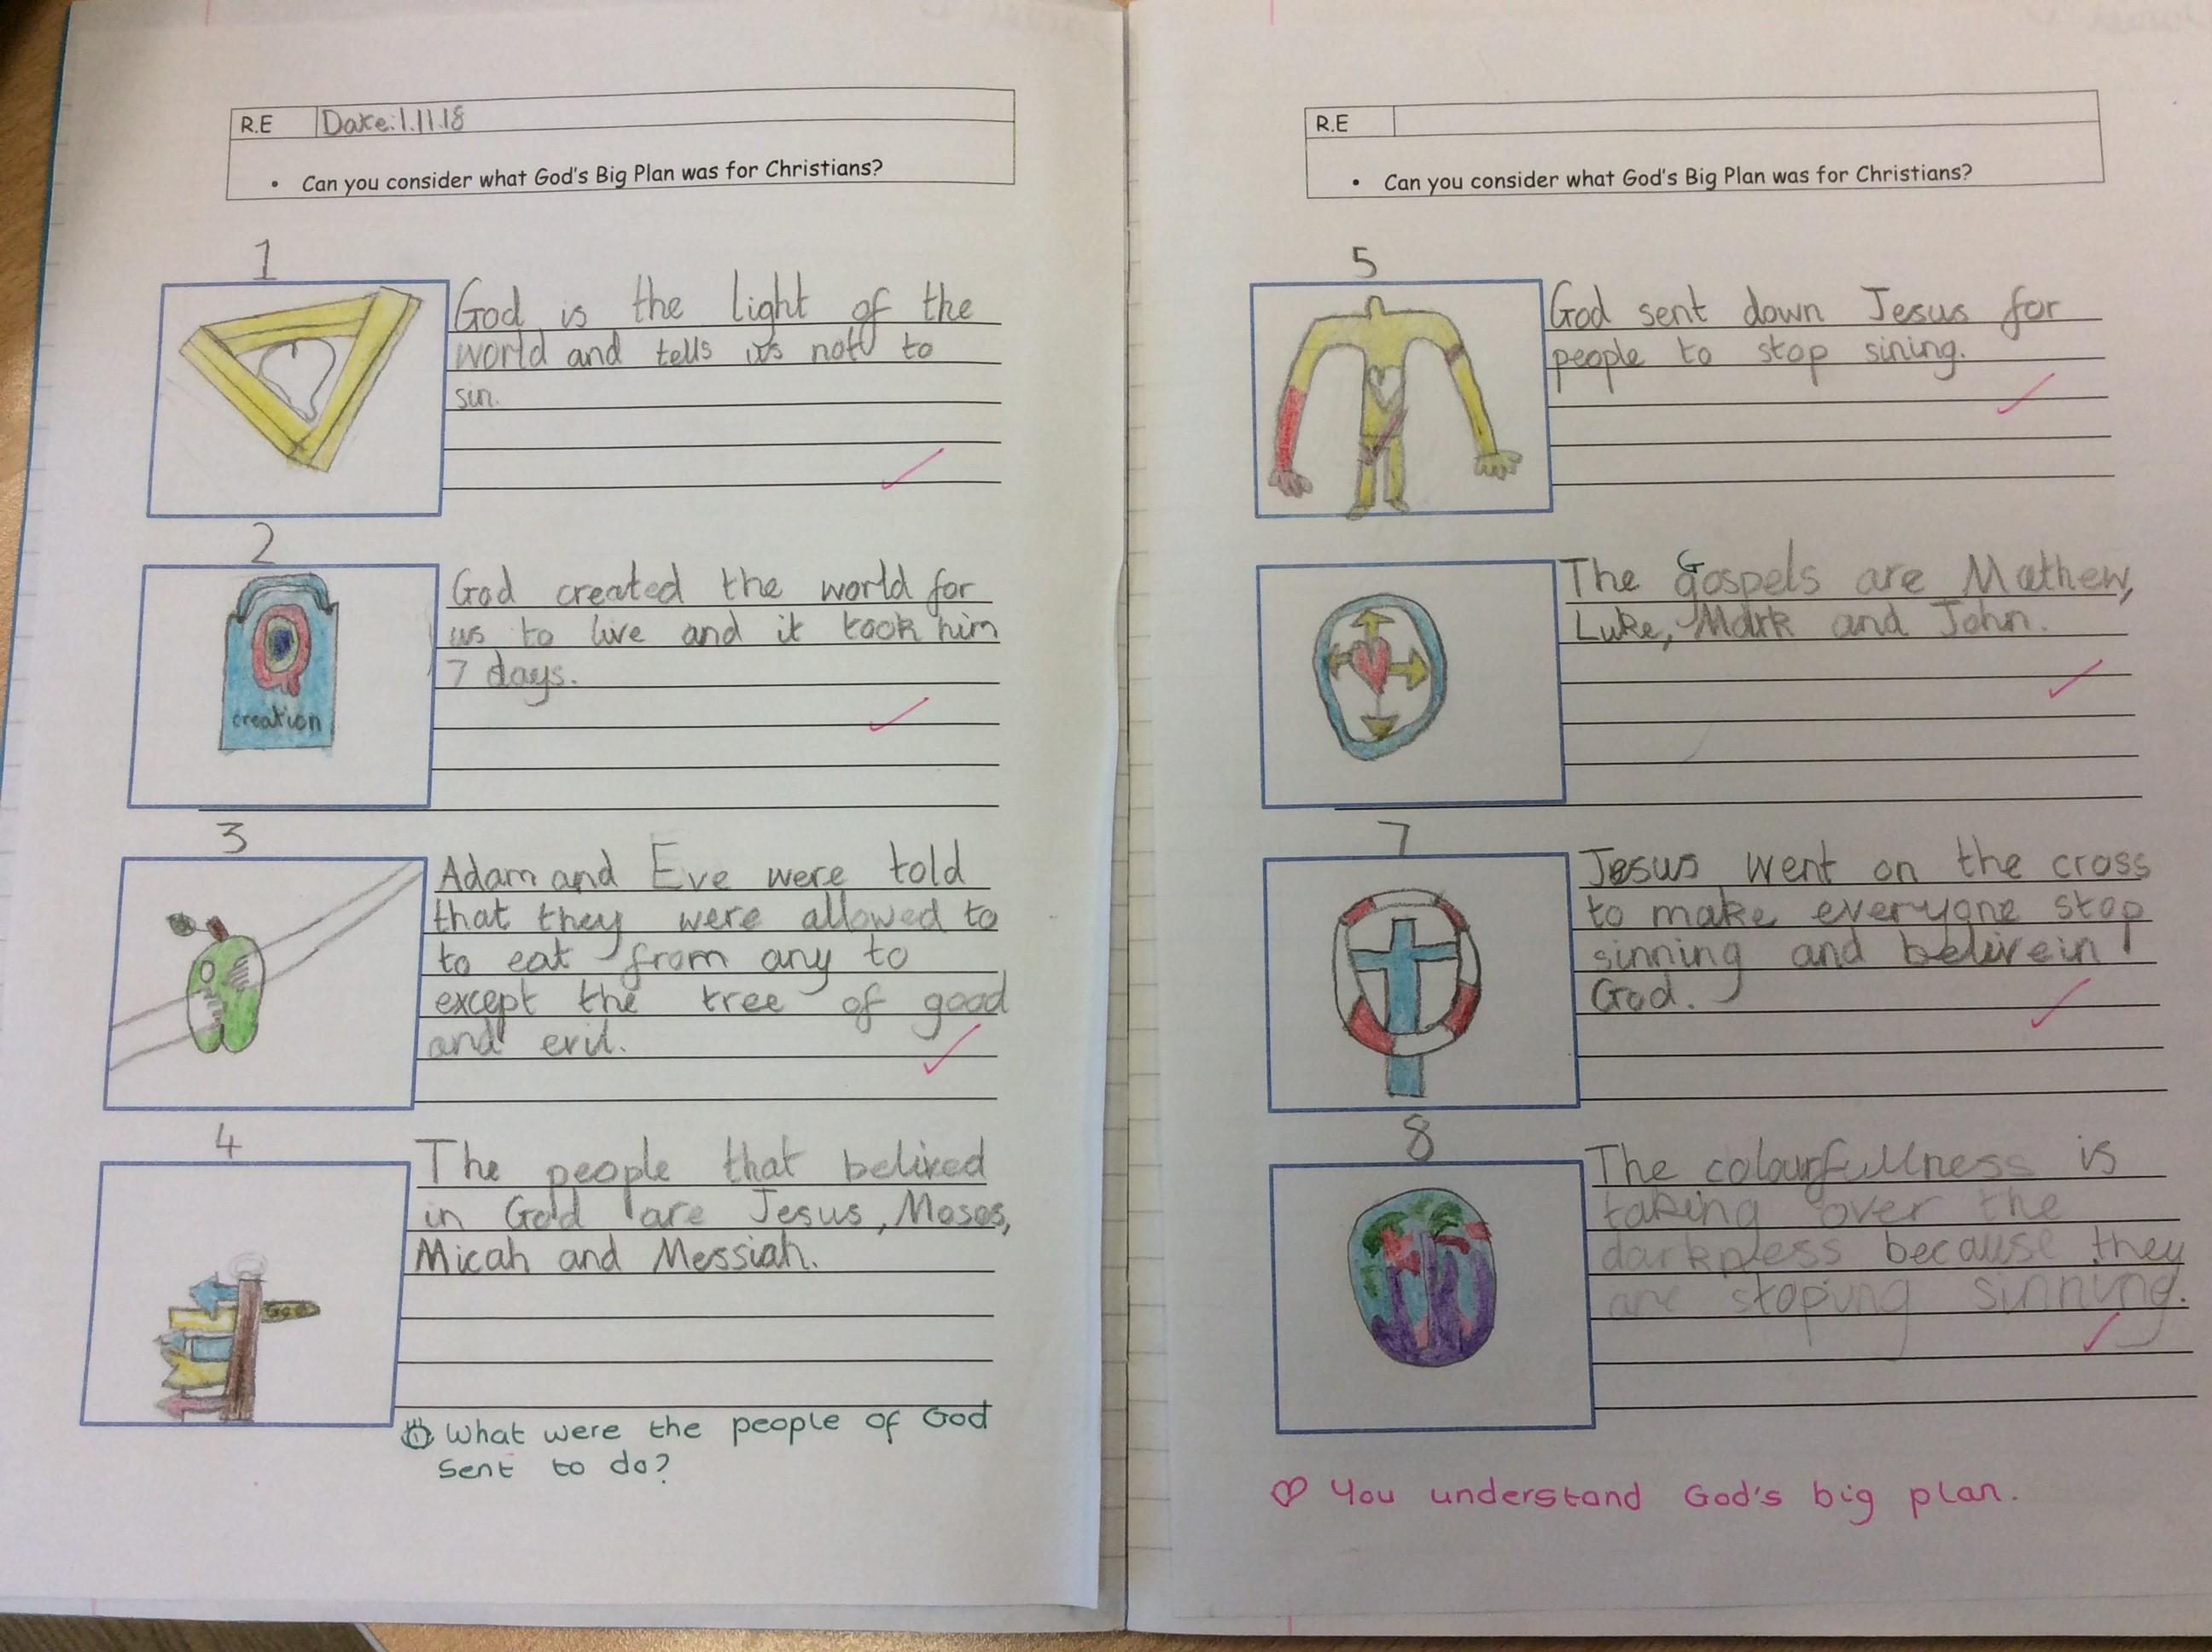 R.E Date: 1.11.18
• Can you consider what God's Big Plan was for Christians?
1
God is the light of the
world and tells us not to
sin.
2
creation
God created the world for
us to live and it took him
7 days.
3
Adam and Eve were told
that they were allowed to
to eat from any to
except the tree of good
and evil.
4
God
The people that belived
in God are Jesus, Moses,
Micah and Messiah.
What were the people of God
sent to do?
R.E
• Can you consider what God's Big Plan was for Christians?
5
God sent down Jesus for
people to stop sining.
The Gospels are Mathew,
Luke, Mark and John.
7
Jesus went on the cross
to make everyone stop
sinning and belive in
God.
8
The colourfullness is
taking over the
darkness because they
are stoping sinning.
You understand God's big plan.